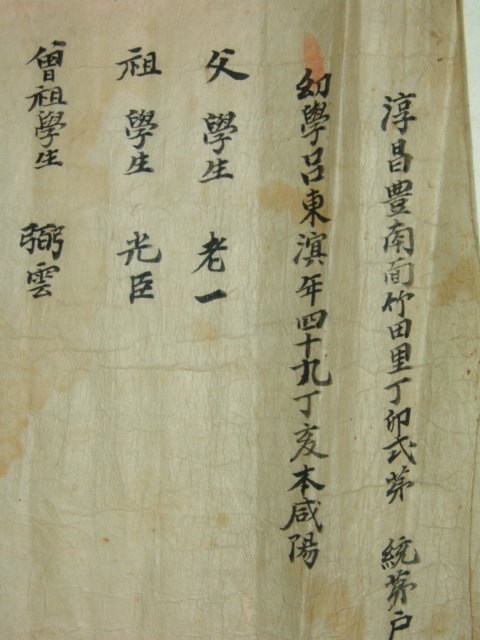 淳昌豊南面竹田里丁卯式苐 統苐户
幼學呂東濵年四十九丁亥本咸陽
父學生 老一
祖學生 光臣
曾祖學生 弼雲